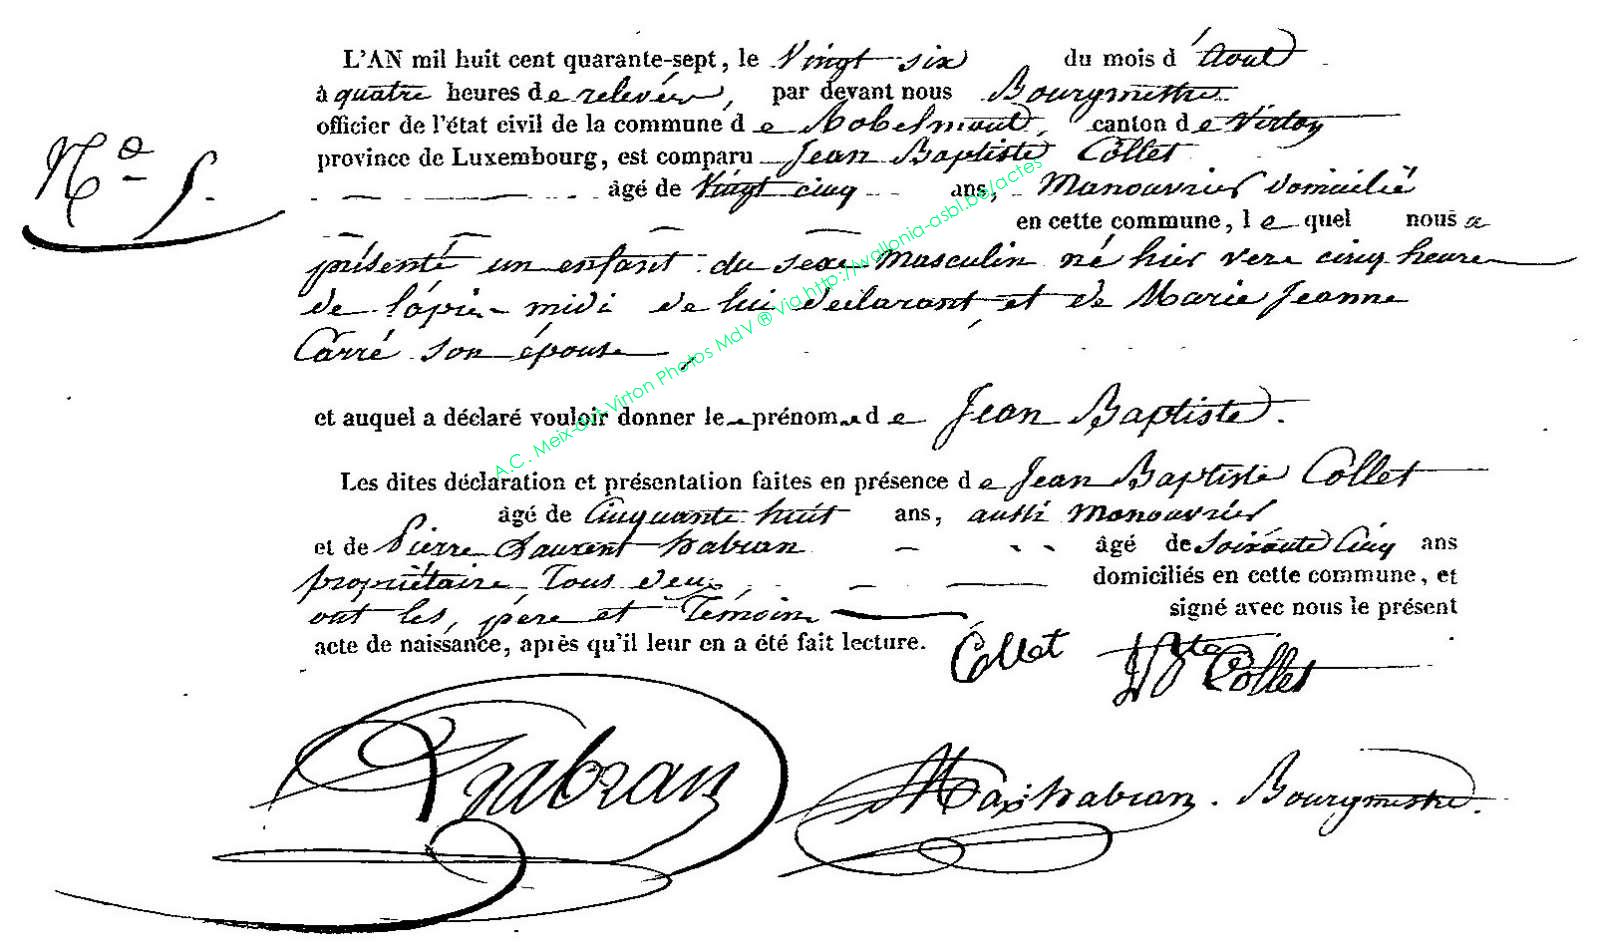 L'AN mil huit cent quarante-sept, le Vingt six du mois d'Aout
à quatre heures de relevée, par devant nous Bourgmestre
officier de l'état civil de la commune de Robelmont, canton de Virton
N° 5.
province de Luxembourg, est comparu Jean Baptiste Collet
âgé de Vingt cinq ans, Manouvrier domicilié
en cette commune, lequel nous a
présenté un enfant du sexe Masculin né hier vers cinq heure
de l'après-midi de lui déclarant, et de Marie Jeanne
Carré son épouse,
et auquel a déclaré vouloir donner le prénom de Jean Baptiste.
Les dites déclaration et présentation faites en présence de Jean Baptiste Collet
âgé de Cinquante huit ans, aussi Manouvrier
et de Pierre Laurent habran âgé de Soixante Cinq ans
propriétaire, Tous deux domiciliés en cette commune, et
ont les, père et Témoin signé avec nous le présent
acte de naissance, après qu'il leur en a été fait lecture.
Collet Collet
habran
habran. Bourgmestre.
A.C. Meix-dvt-Virton Photos MdV ® Via http://wallonia-asbl.be/actes